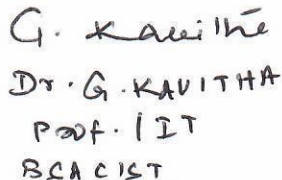 G. Kavitha
Dr. G. KAVITHA
Prof. IIT
BSACIST